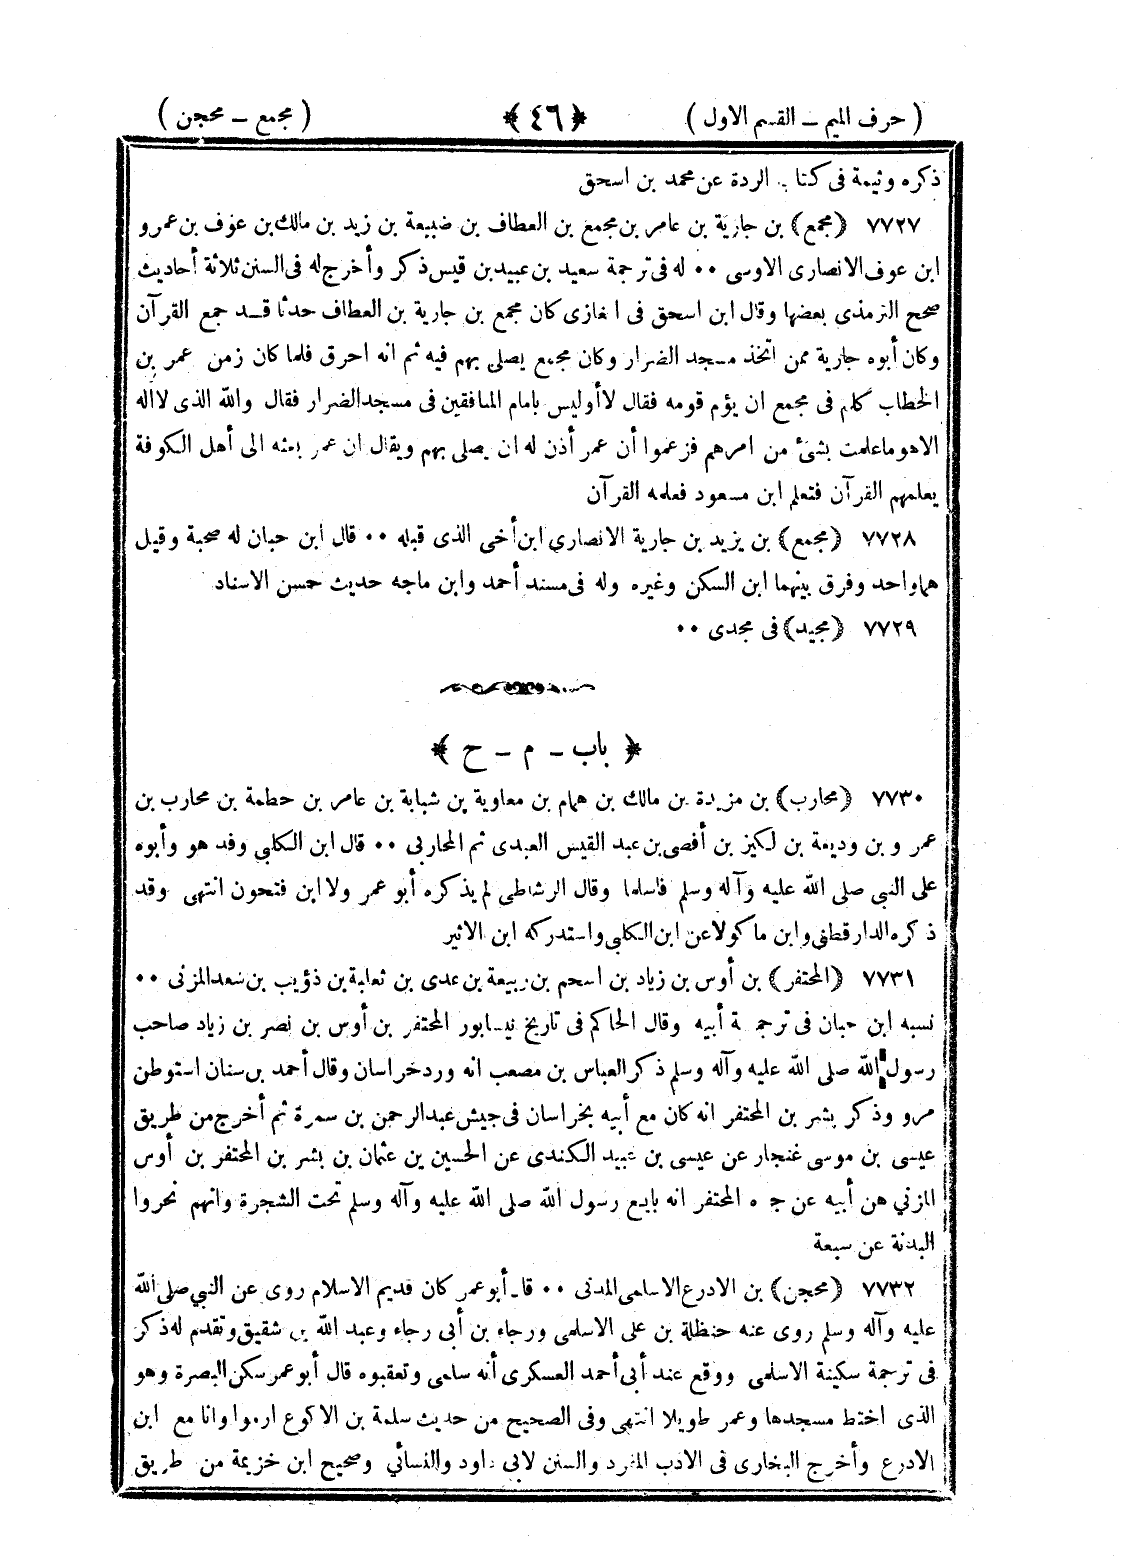 ( حرف الميم ــ القسم الاول ) ﴿ ٤٦ ﴾ ( مجمع ــ محجن )
ذكره وثيمة فى كتاب الردة عن محمد بن اسحق
٧٧٢٧ (مجمع) بن جارية بن عامر بن مجمع بن العطاف بن ضبيعة بن زيد بن مالك بن عوف بن عمرو
ابن عوف الانصارى الاوسى ٠٠ له فى ترجمة سعيد بن عبيد بن قيس ذكر وأخرج له فى السنن ثلاثة أحاديث
صحح الترمذى بعضها وقال ابن اسحق فى المغازى كان مجمع بن جارية بن العطاف حدثا قد جمع القرآن
وكان أبوه جارية ممن اتخذ مسجد الضرار وكان مجمع يصلى بهم فيه ثم انه احرق فلما كان زمن عمر بن
الخطاب كلم فى مجمع ان يؤم قومه فقال لا أوليس بامام المنافقين فى مسجد الضرار فقال والله الذى لا اله
الا هو ماعلمت بشئ من امرهم فزعموا أن عمر أذن له ان يصلى بهم ويقال ان عمر بعثه الى أهل الكوفة
يعلمهم القرآن فتعلم ابن مسعود فعلمه القرآن
٧٧٢٨ (مجمع) بن يزيد بن جارية الانصارى ابن أخى الذى قبله ٠٠ قال ابن حبان له صحبة وقيل
هما واحد وفرق بينهما ابن السكن وغيره وله فى مسند أحمد وابن ماجه حديث حسن الاسناد
٧٧٢٩ (مجيد) فى مجدى ٠٠
﴿ باب ــ م ــ ح ﴾
٧٧٣٠ (محارب) بن مزيدة بن مالك بن همام بن معاوية بن شبابة بن عامر بن حطمة بن محارب بن
عمر و بن وديعة بن لكيز بن أفصى بن عبد القيس العبدى ثم المحاربى ٠٠ قال ابن الكلبي وفد هو وأبوه
على النبي صلى الله عليه وآله وسلم فاسلما وقال الرشاطى لم يذكره أبو عمر ولا ابن فتحون انتهى وقد
ذكره الدارقطنى وابن ماكولا عن ابن الكلبي واستدركه ابن الاثير
٧٧٣١ (المحتفر) بن أوس بن زياد بن اسحم بن ربيعة بن عدى بن ثعلبة بن ذؤيب بن سعد المزنى ٠٠
نسبه ابن حبان فى ترجمة أبيه وقال الحاكم فى تاريخ نيسابور المحتفر بن أوس بن نصر بن زياد صاحب
رسول الله صلى الله عليه وآله وسلم ذكر العباس بن مصعب انه ورد خراسان وقال أحمد بن سنان استوطن
مرو وذكر بشر بن المحتفر انه كان مع أبيه بخراسان فى جيش عبد الرحمن بن سمرة ثم أخرج من طريق
عيسى بن موسى غنجار عن عيسى بن عبيد الكندى عن الحسين بن عثمان بن بشر بن المحتفر بن أوس
المزني عن أبيه عن جده المحتفر انه بايع رسول الله صلى الله عليه وآله وسلم تحت الشجرة وانهم نحروا
البدنة عن سبعة
٧٧٣٢ (محجن) بن الادرع الاسلمى المدنى ٠٠ قال أبو عمر كان قديم الاسلام روى عن النبي صلى الله
عليه وآله وسلم روى عنه حنظلة بن على الاسلمى ورجاء بن أبي رجاء وعبد الله بن شقيق وتقدم له ذكر
فى ترجمة سكينة الاسلمى ووقع عند أبى أحمد العسكرى أنه سلمى وتعقبوه قال أبو عمر سكن البصرة وهو
الذى اختط مسجدها وعمر طويلا انتهى وفى الصحيح من حديث سلمة بن الاكوع ارموا وانا مع ابن
الادرع وأخرج البخارى فى الادب المفرد والسنن لابى داود والنسائي وصحيح ابن خزيمة من طريق